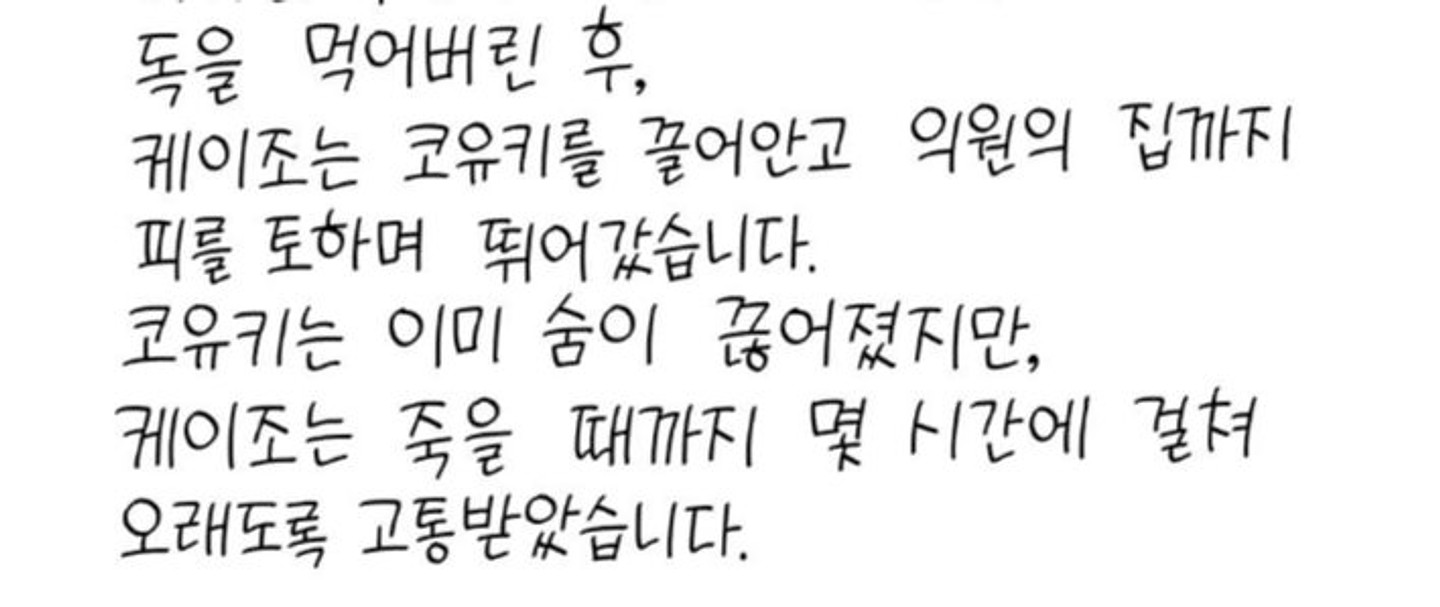 독을 먹어버린 후,
케이조는 코유키를 끌어안고 의원의 집까지
피를 토하며 뛰어갔습니다.
코유키는 이미 숨이 끊어졌지만,
케이조는 죽을 때까지 몇 시간에 걸쳐
오래도록 고통받았습니다.